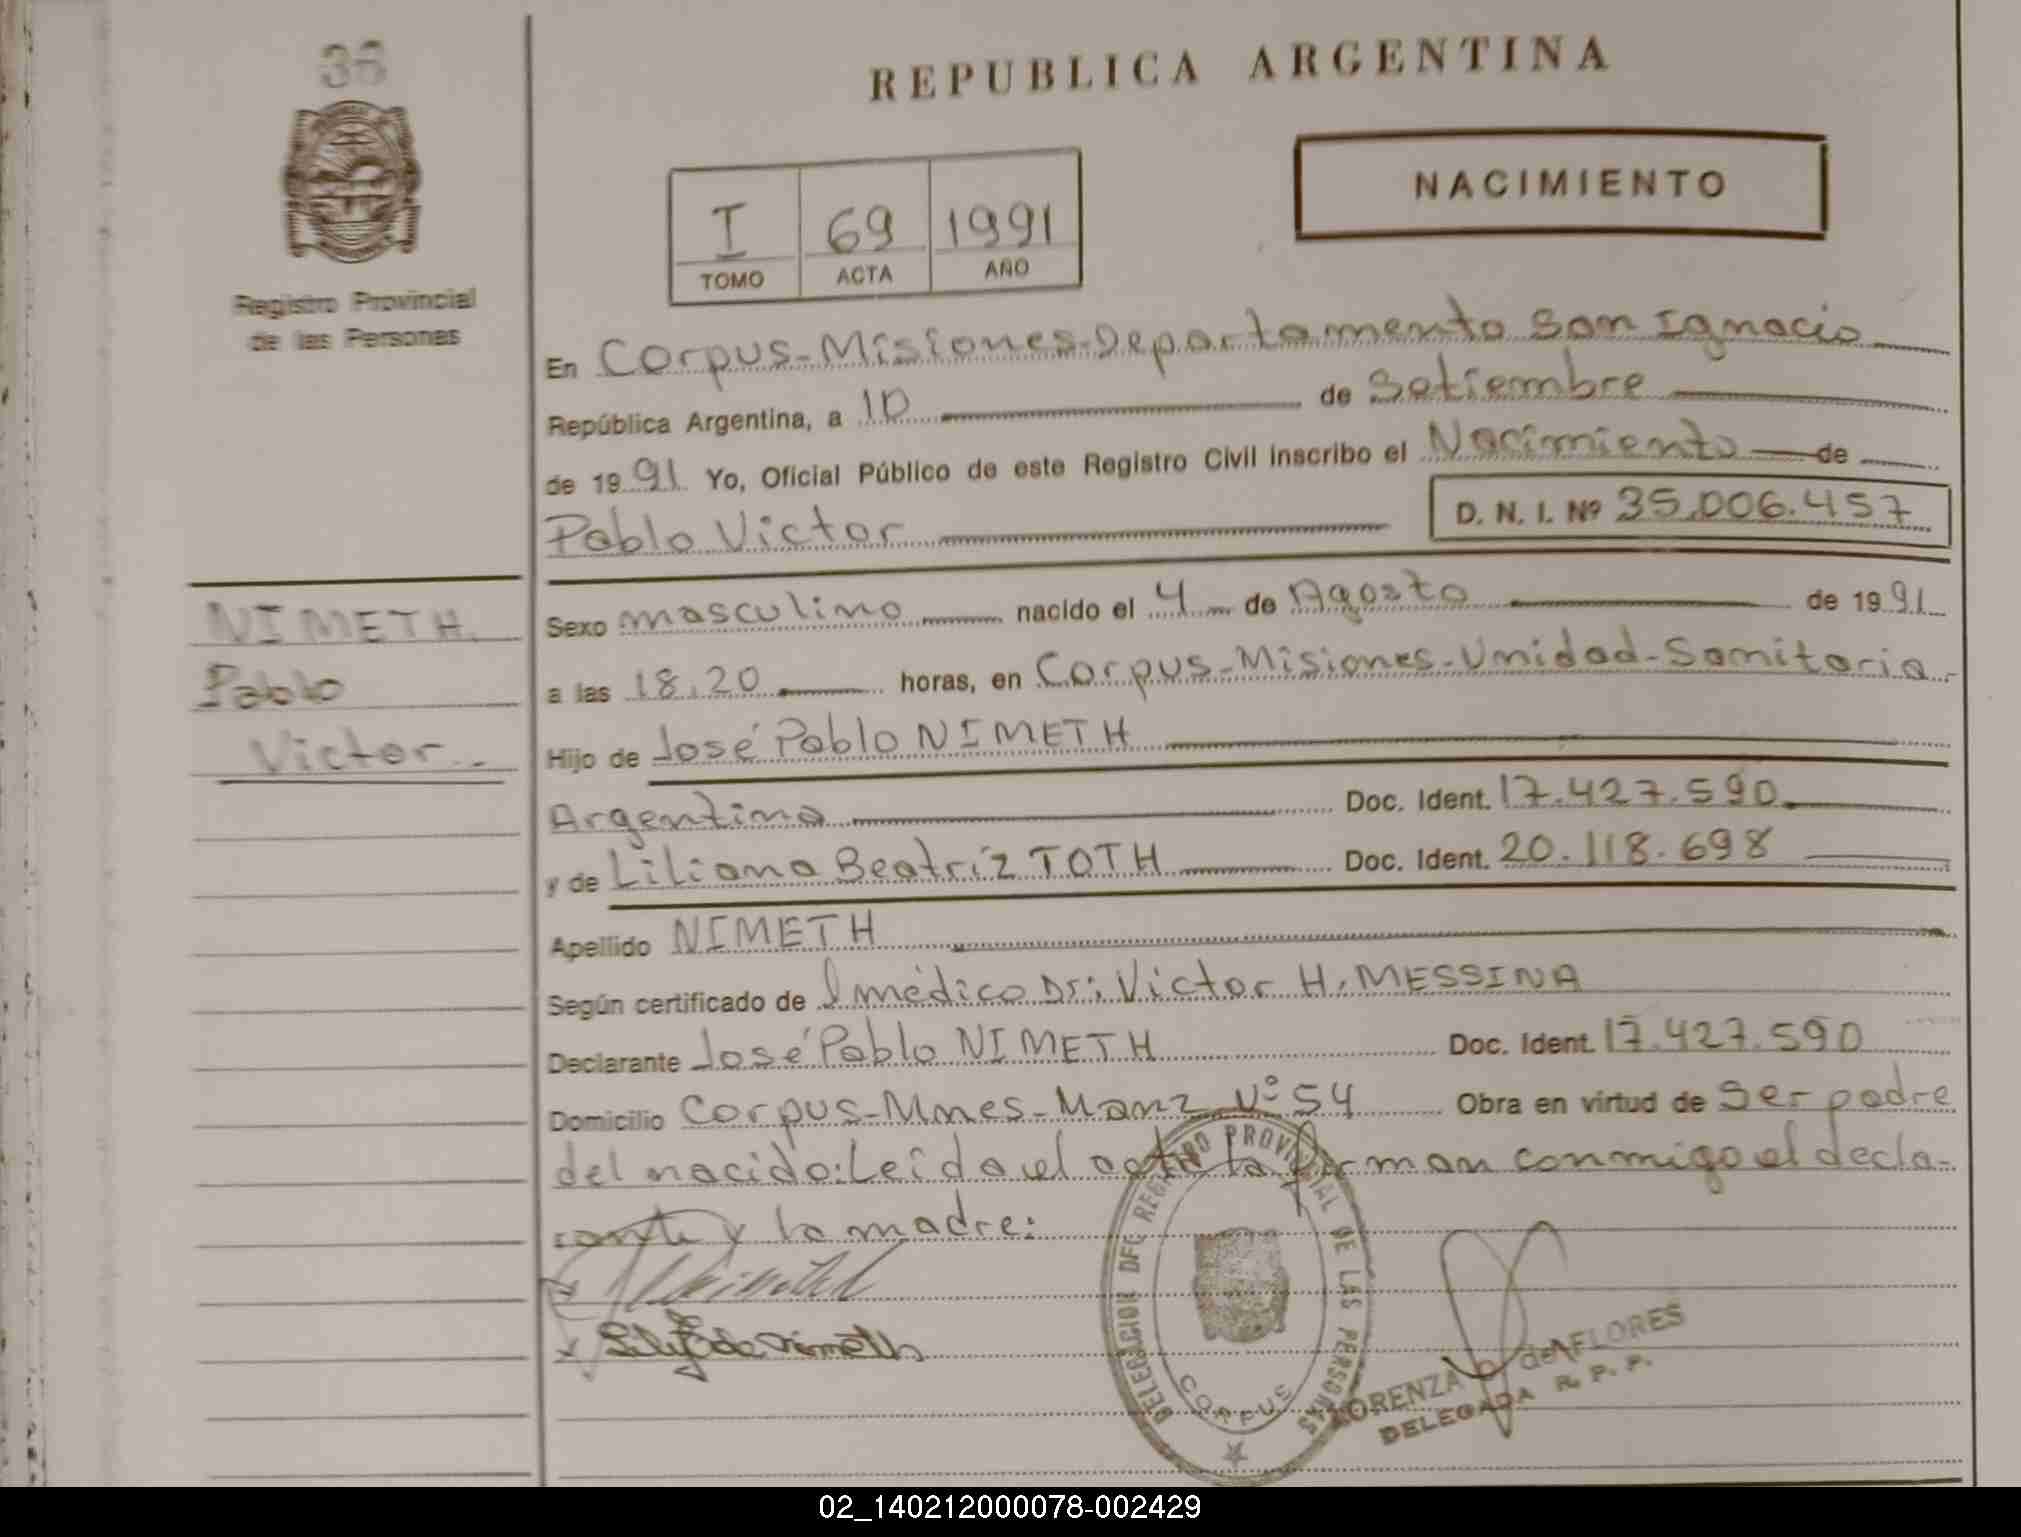 36
REPUBLICA ARGENTINA
NACIMIENTO
I 69 1991
TOMO ACTA AÑO
Registro Provincial
de las Personas
En Corpus-Misiones-Departamento San Ignacio
República Argentina, a 10 de Setiembre
de 1991 Yo, Oficial Público de este Registro Civil inscribo el Nacimiento de
Pablo Victor D. N. I. Nº 35.006.457
NIMETH
Pablo
Victor.-
Sexo masculino nacido el 4 de Agosto de 1991
a las 18.20 horas, en Corpus-Misiones-Unidad-Sanitaria-
Hijo de José Pablo NIMETH
Argentino Doc. Ident. 17.427.590
y de Liliana Beatríz TOTH Doc. Ident. 20.118.698
Apellido NIMETH
Según certificado de l médico Dr: Victor H. MESSINA
Declarante José Pablo NIMETH Doc. Ident. 17.427.590
Domicilio Corpus-Mnes-Manz Nº 54 Obra en virtud de Ser padre
del nacido: Leída el acta la firman conmigo el decla-
rante y la madre:
DELEGACION DEL REGISTRO PROVINCIAL DE LAS PERSONAS
CORPUS
LORENZA de FLORES
DELEGADA R. P. P.
02_140212000078-002429